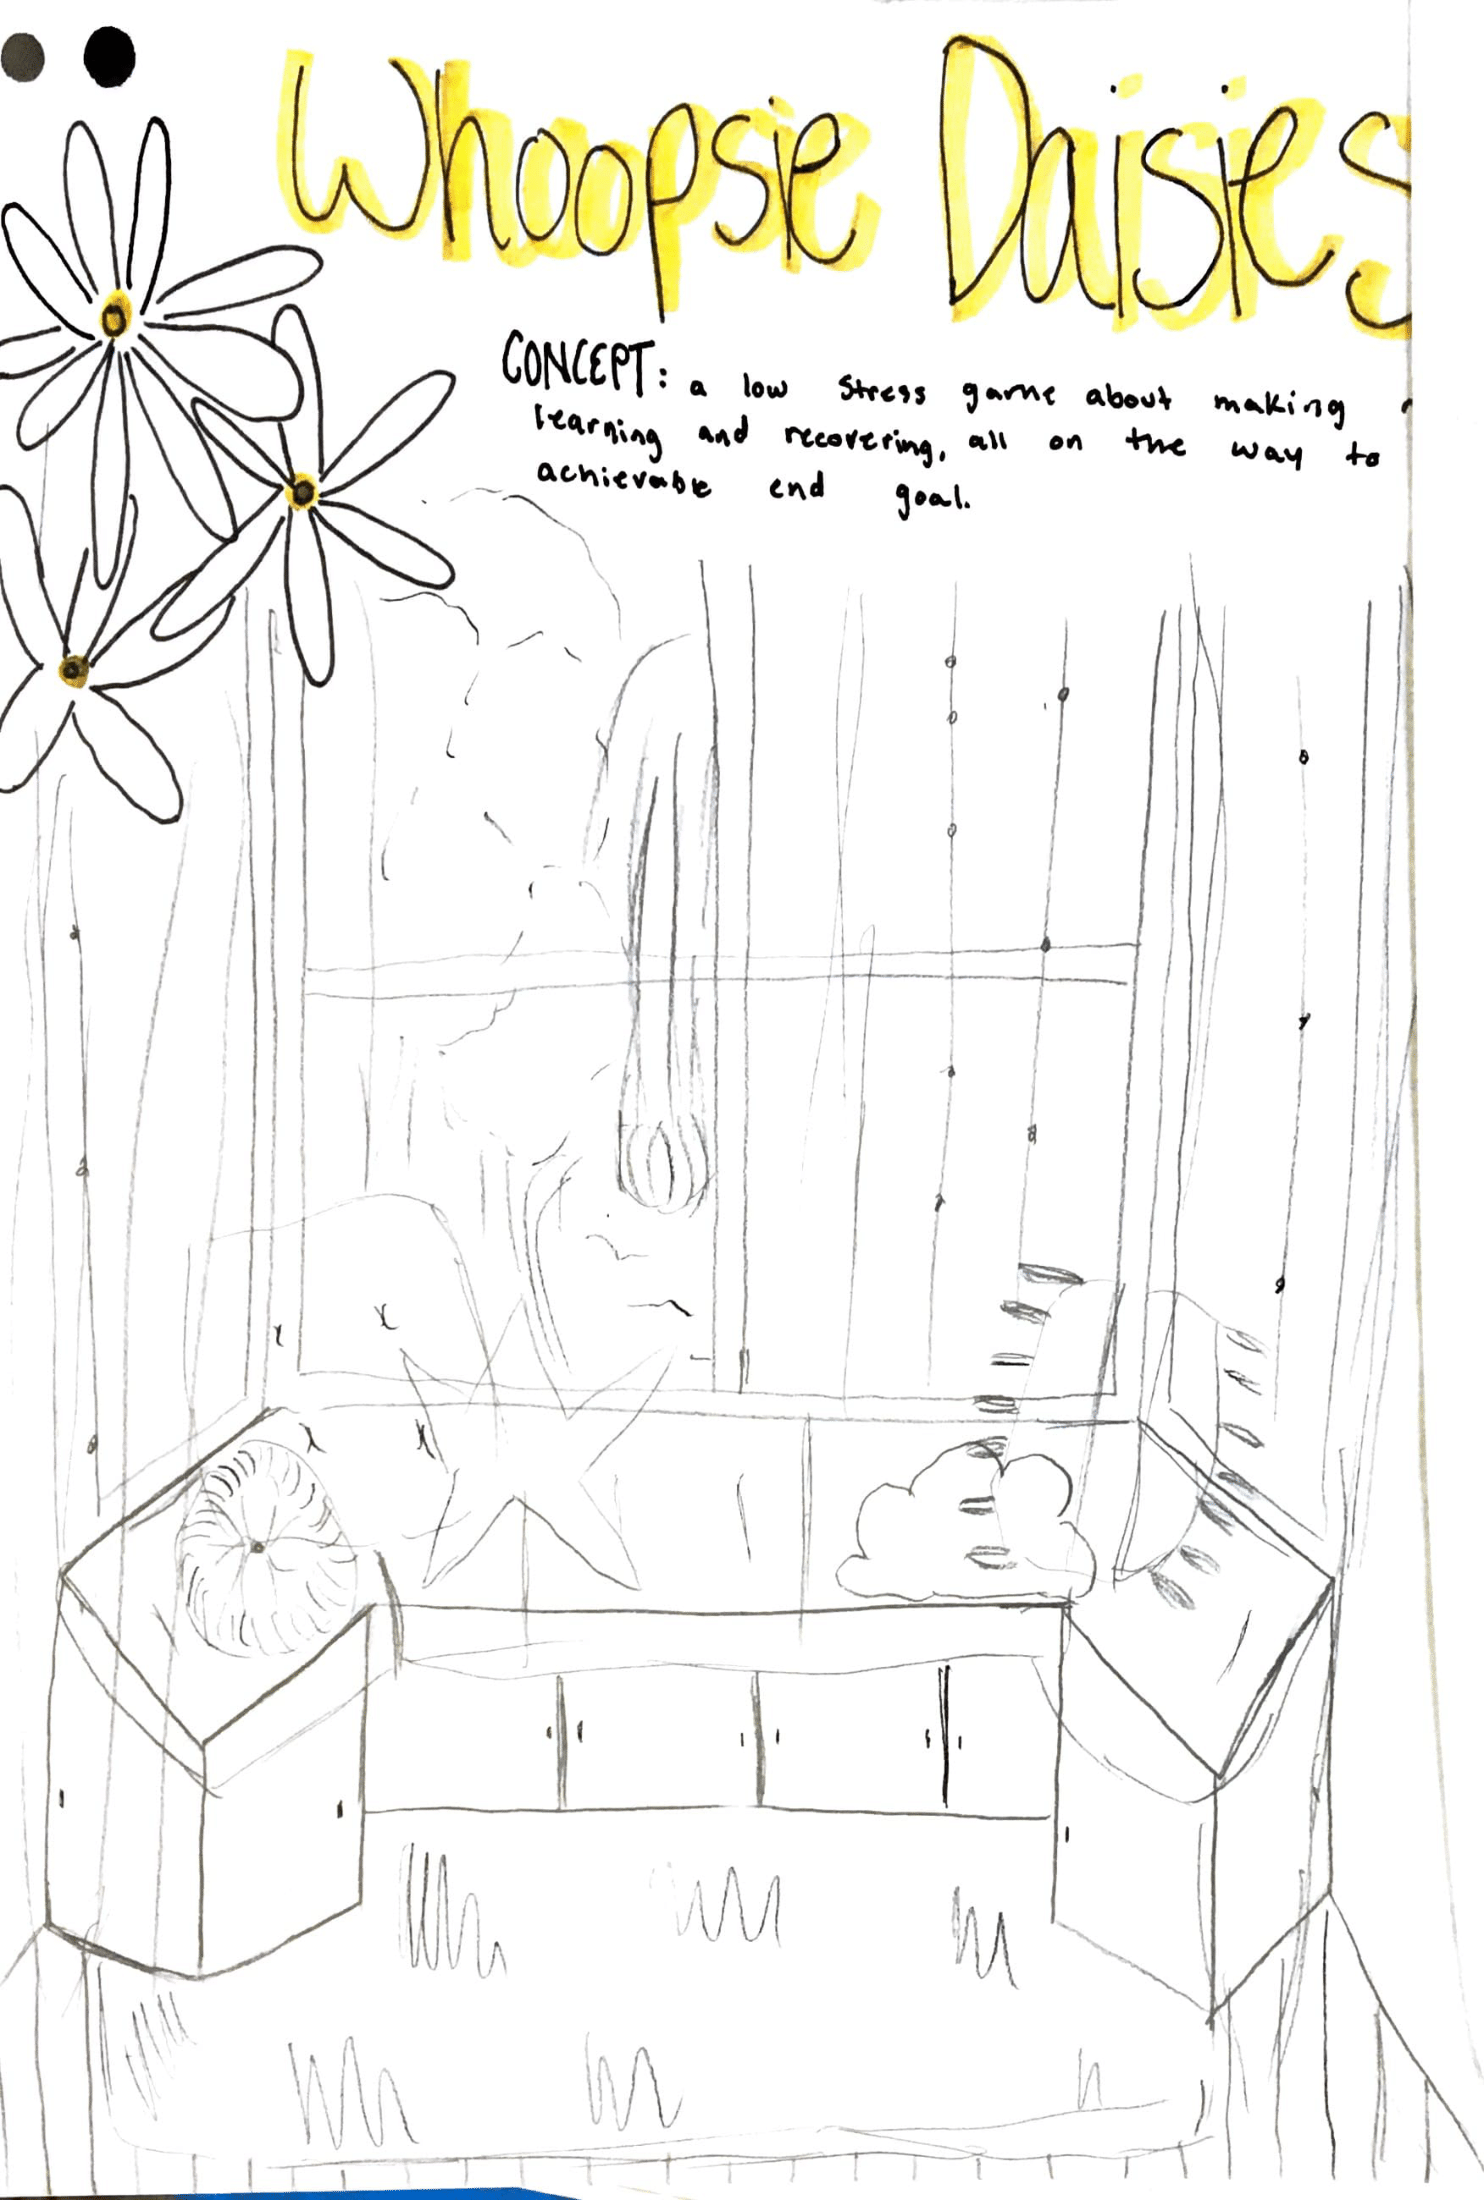 Whoopsie Daisies
CONCEPT: a low stress game about making
learning and recovering, all on the way to
achievable end goal.